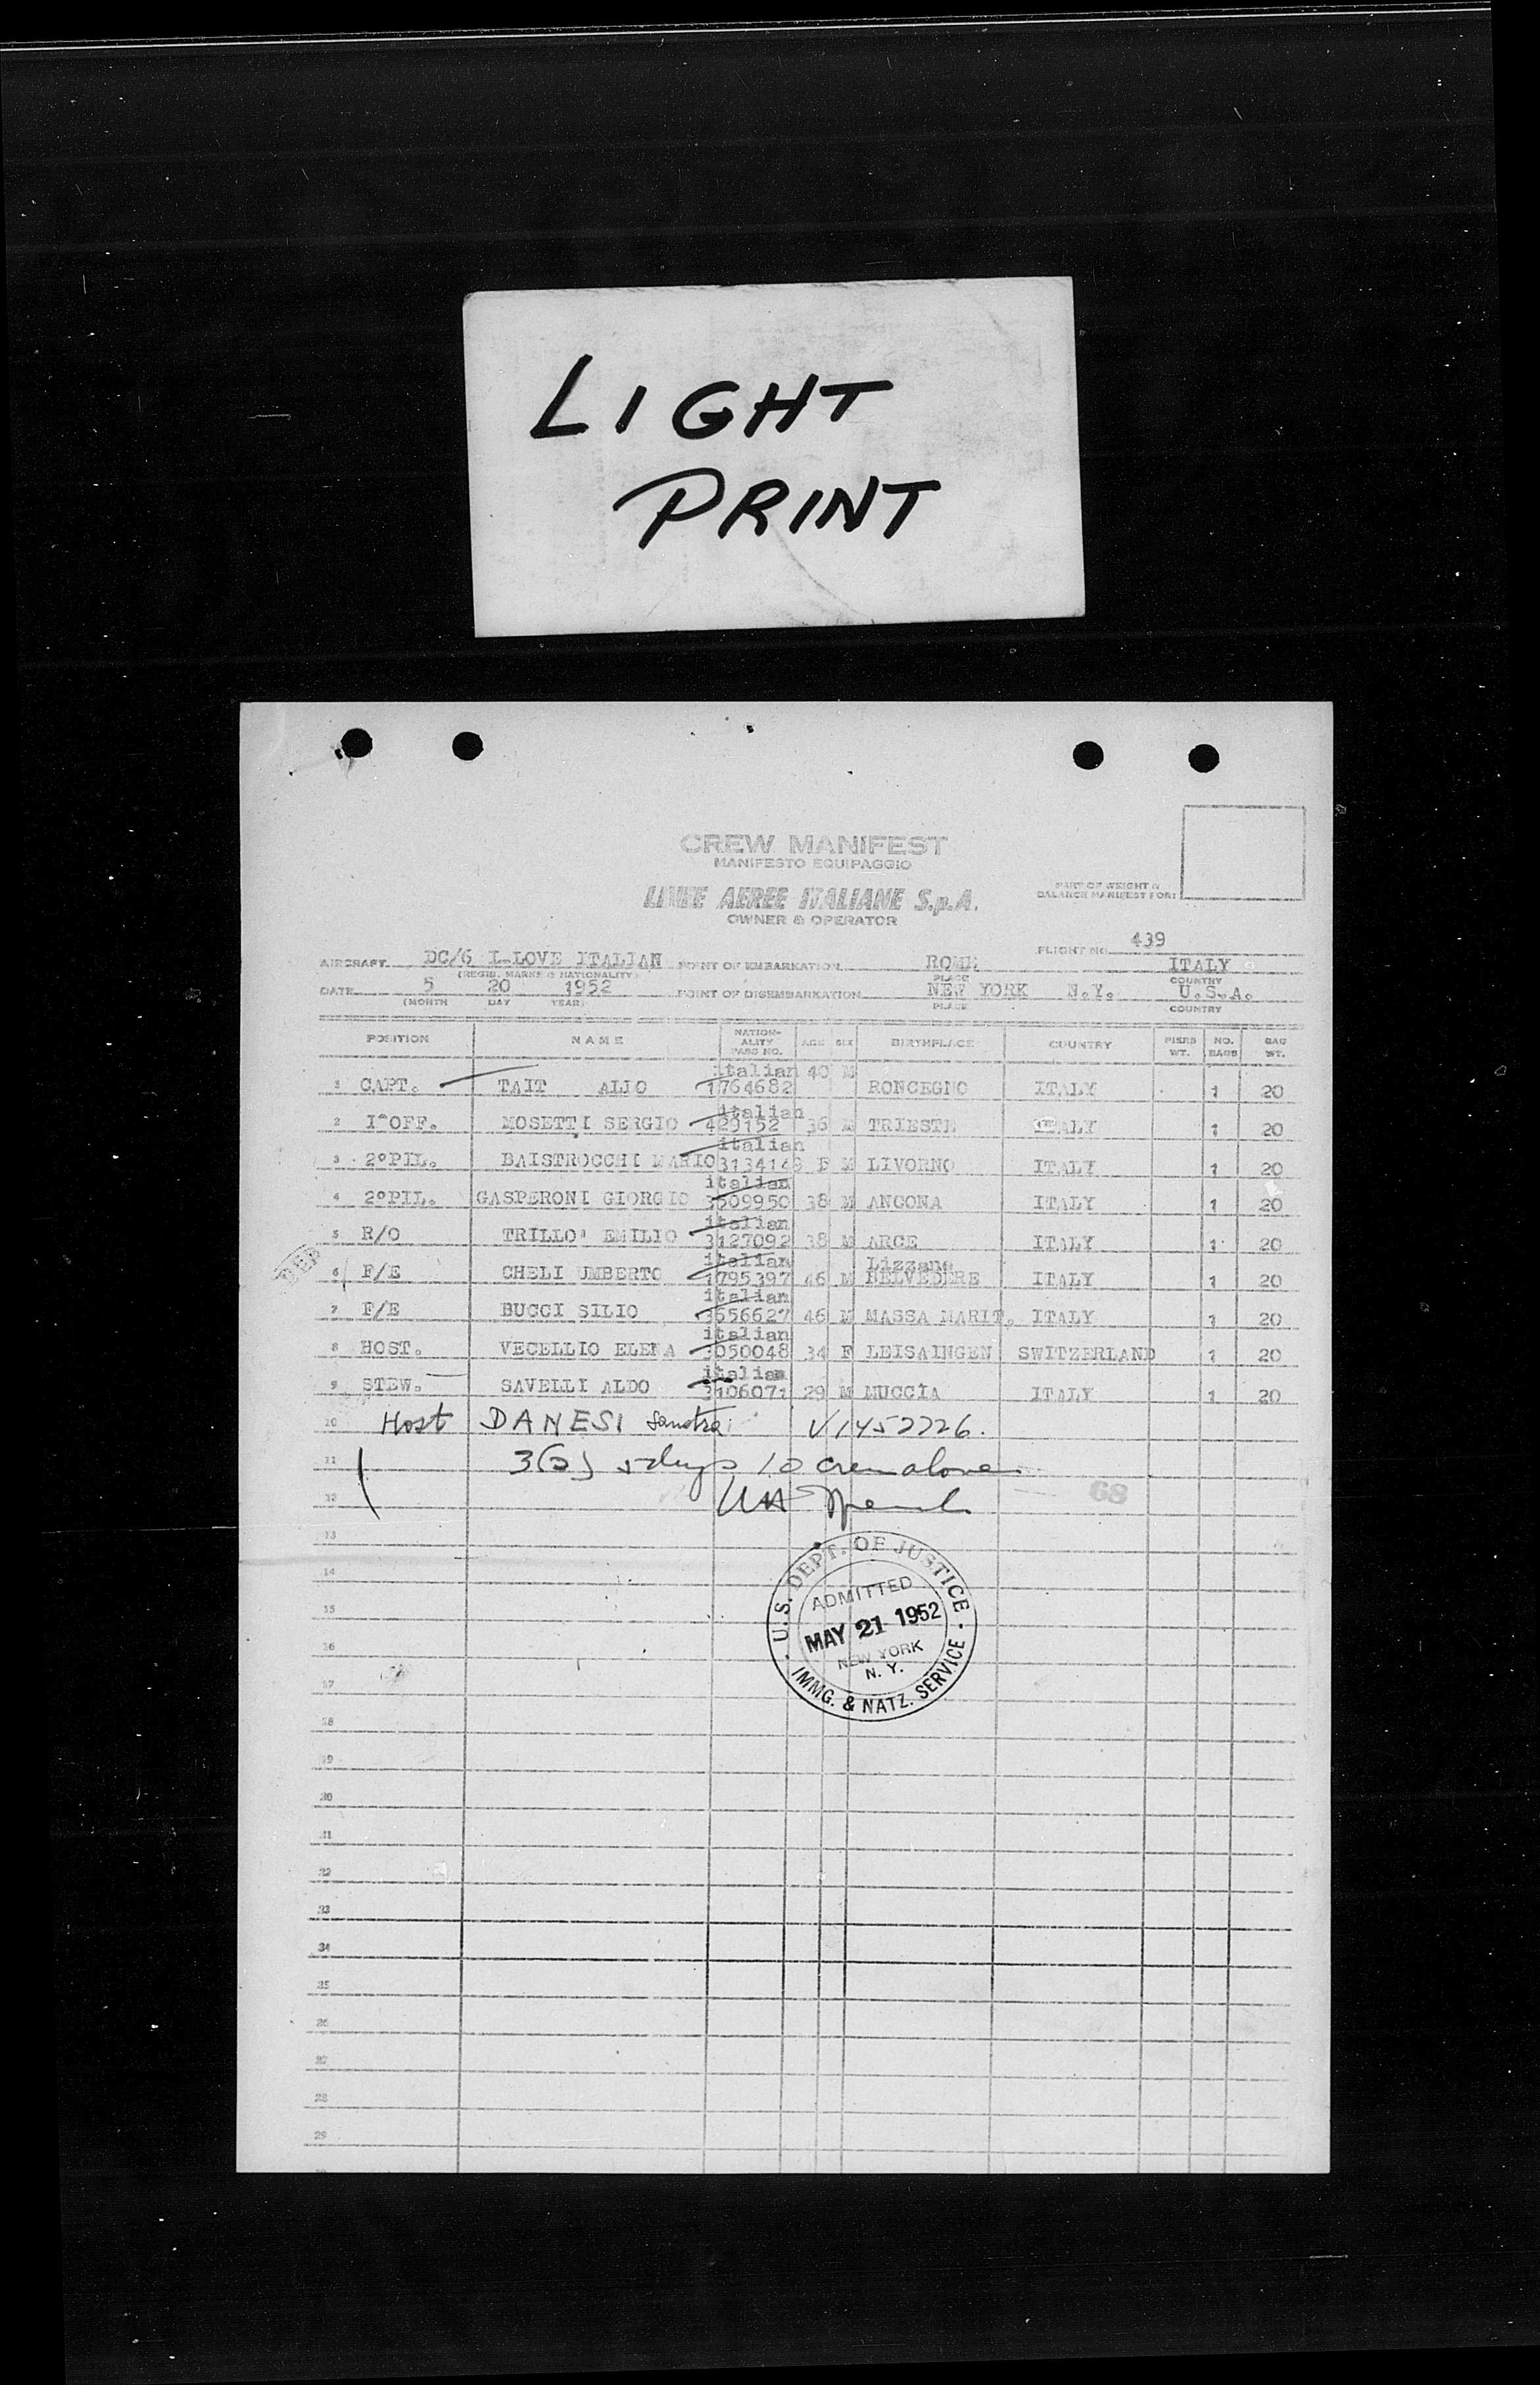 LIGHT
PRINT
CREW MANIFEST
MANIFESTO EQUIPAGGIO
LINEE AEREE ITALIANE S.p.A.
OWNER & OPERATOR
PART OF WEIGHT &
BALANCE MANIFEST FOR:
FLIGHT NO. 439
AIRCRAFT DC/6 I-LOVE ITALIAN POINT OF EMBARKATION ROME ITALY
(REGIS. MARKS & NATIONALITY) PLACE COUNTRY
DATE 5 20 1952 POINT OF DISEMBARKATION NEW YORK N.Y. U.S.A.
(MONTH DAY YEAR) PLACE COUNTRY
POSITION NAME NATION-ALITY PASS NO. AGE SEX BIRTHPLACE COUNTRY PIERS WT. NO. BAGS BAG WT.
italian 40 M
1 CAPT. TAIT 1764682 RONCEGNO ITALY 1 20
italian
2 I°OFF. MOSETTI SERGIO 429152 36 M TRIESTE ITALY 1 20
italian
3 2°PIL. BAISTROCCHI MARIO M LIVORNO ITALY 1 20
italian
4 2°PIL. GASPERONI GIORGIO 3509950 38 M ANCONA ITALY 1 20
italian
5 R/O TRILLO' EMILIO 3127092 38 M ARCE ITALY 1 20
italian Lizzano
6 F/E CHELI UMBERTO 1795397 46 M BELVEDERE ITALY 1 20
italian
7 F/E BUCCI SILIO 3656627 46 M MASSA MARIT. ITALY 1 20
italian
8 HOST. VECELLIO ELENA 3050048 34 F LEISAINGEN SWITZERLAND 1 20
italian
9 STEW. SAVELLI ALDO 3106071 29 M MUCCIA ITALY 1 20
10 Host DANESI Sandra V1452226.
11 3(5) 5 days 10 crew above
12 68
13
14
15
16
17
18
19
20
21
22
23
24
25
26
27
28
29
U.S. DEPT. OF JUSTICE
ADMITTED
MAY 21 1952
NEW YORK
N. Y.
IMMG. & NATZ. SERVICE